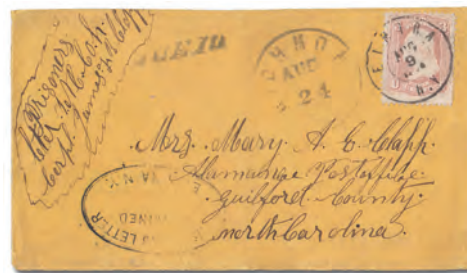 prisoners
letter
Corpl. James
PAID
RICHMOND
AUG
24
ELMIRA
AUG
9
N.Y.
Mrs. Mary A. C. Clapp.
Alamance Postoffice.
Guilford County.
north Carolina.
LETTER